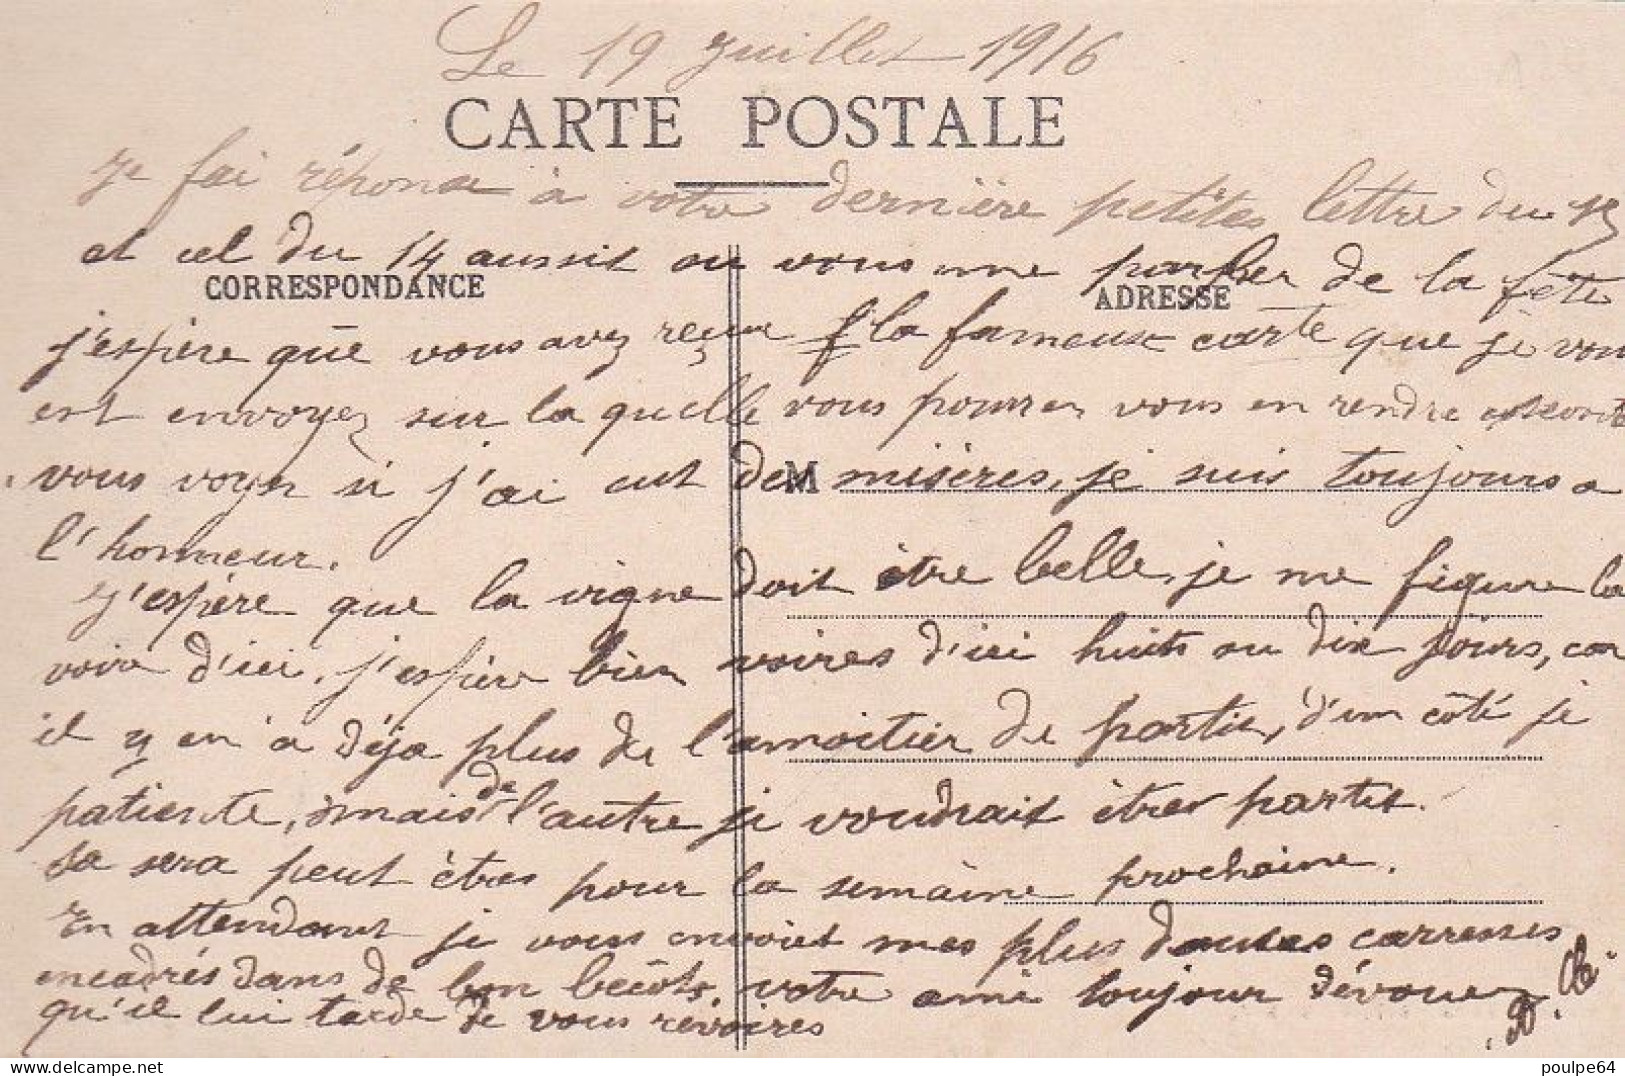 Le 19 Juillet 1916
CARTE POSTALE
Je fai réponse à votre dernière petites lettre du 13
et cel du 14 aussit ou vous me parler de la fête
CORRESPONDANCE
ADRESSE
j'espère que vous avez reçue la fameuse carte que je vous
est envoyez sur la quelle vous pourrez vous en rendre
vous voyez si j'ai eut de misères, je suis toujours a
M
l'honneur.
J'espère que la vigne doit être belle, je me figure la
voir d'ici, j'espère bien voires d'ici huits ou dix jours, car
il y en a déja plus de l'amoitier de partis, d'un côté je
patiente, mais de l'autre je voudrait êtres partit.
sa sera peut êtres pour la semaine prochaine.
En attendant je vous envoiet mes plus douces carresses
encadrés dans de bon becôts, votre ami toujour dévouer
qu'il lui tarde de vous revoires
poulpe64